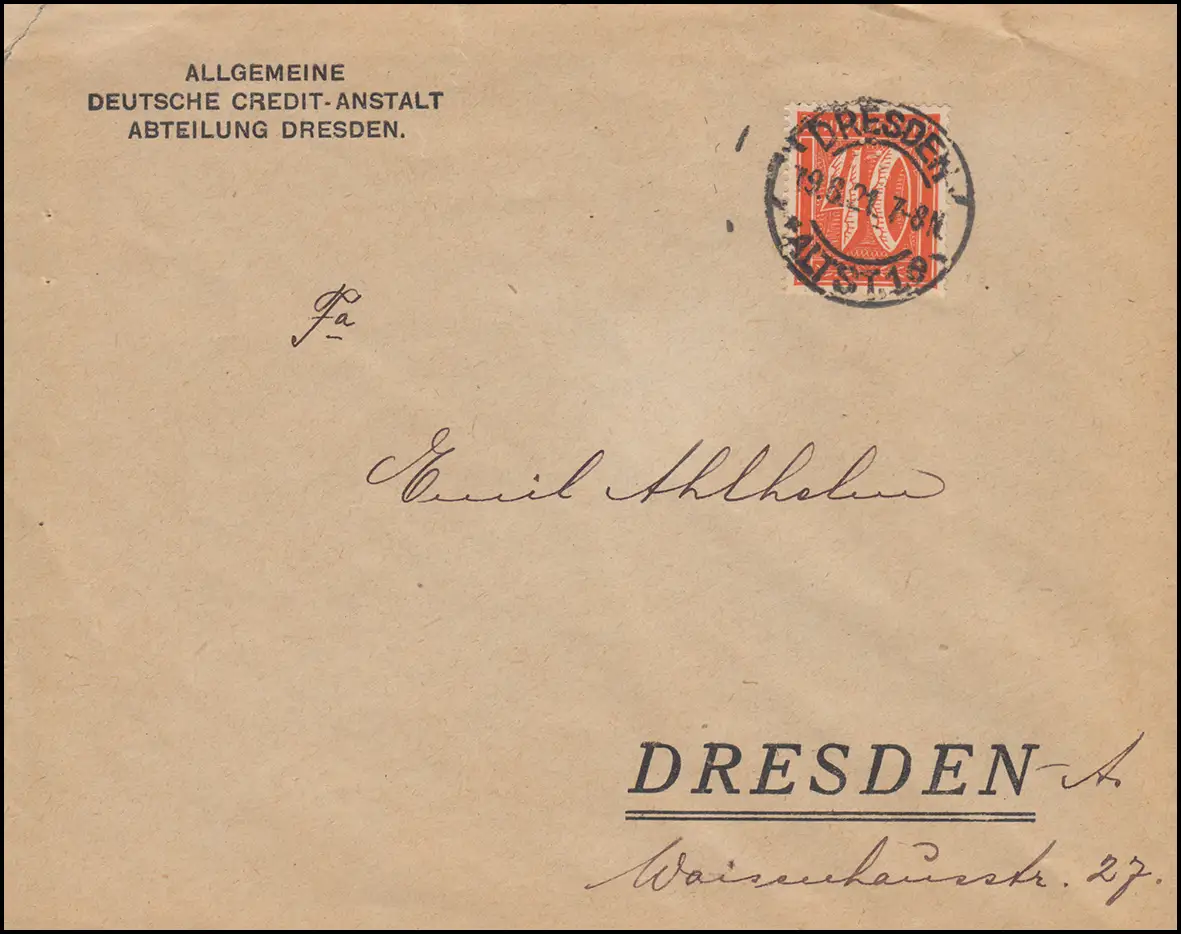 ALLGEMEINE
DEUTSCHE CREDIT-ANSTALT
ABTEILUNG DRESDEN.
DRESDEN
19.8.21. 7-8N.
* ALTST. 19
40
Fa
Emil Ahlhelm
DRESDEN - A.
Waisenhausstr. 27.